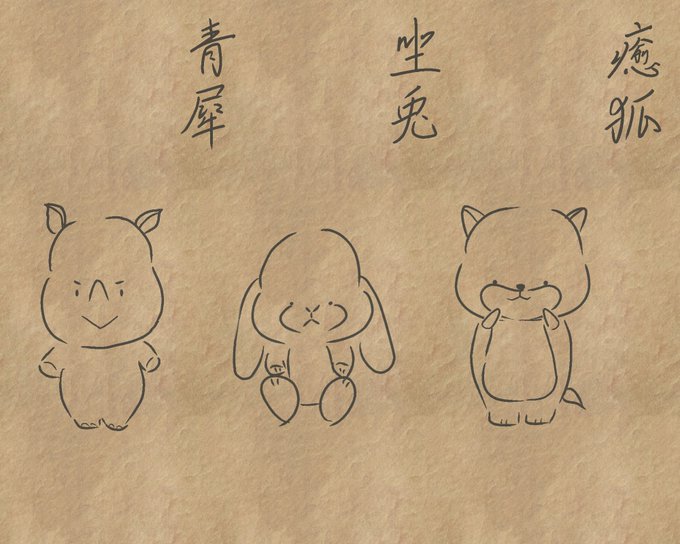 癒狐
坐兎
青犀